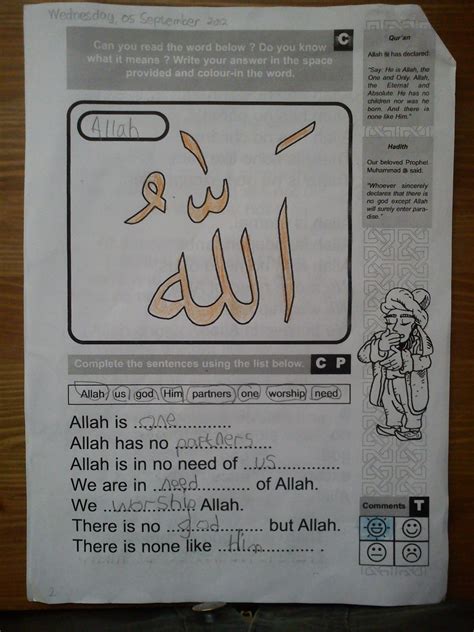 Wednesday, 05 September 2012
Can you read the word below ? Do you know
what it means ? Write your answer in the space
provided and colour-in the word.
C
Allah
اَللّٰهُ
Qur'an
Allah ﷻ has declared:
"Say: He is Allah, the
One and Only. Allah,
the Eternal and
Absolute. He has no
children nor was he
born. And there is
none like Him."
Hadith
Our beloved Prophet
Muhammad ﷺ said:
"Whoever sincerely
declares that there is
no god except Allah
will surely enter para-
dise."
Complete the sentences using the list below.
C P
Allah us god Him partners one worship need
Allah is ....one....................
Allah has no partners...........
Allah is in no need of ..us..............
We are in ..need............ of Allah.
We ...worship Allah.
There is no ...god.......... but Allah.
There is none like ..Him............. .
Comments T
2